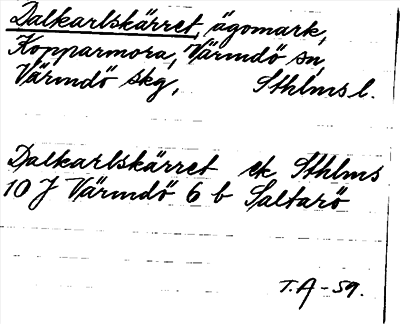 Dalkarlskärret, ägomark,
Kopparmora, Värmdö sn,
Värmdö skg, Sthlms l.
Dalkarlskärret ek Sthlms
10 J Värmdö 6 b Saltarö
T.A-59.